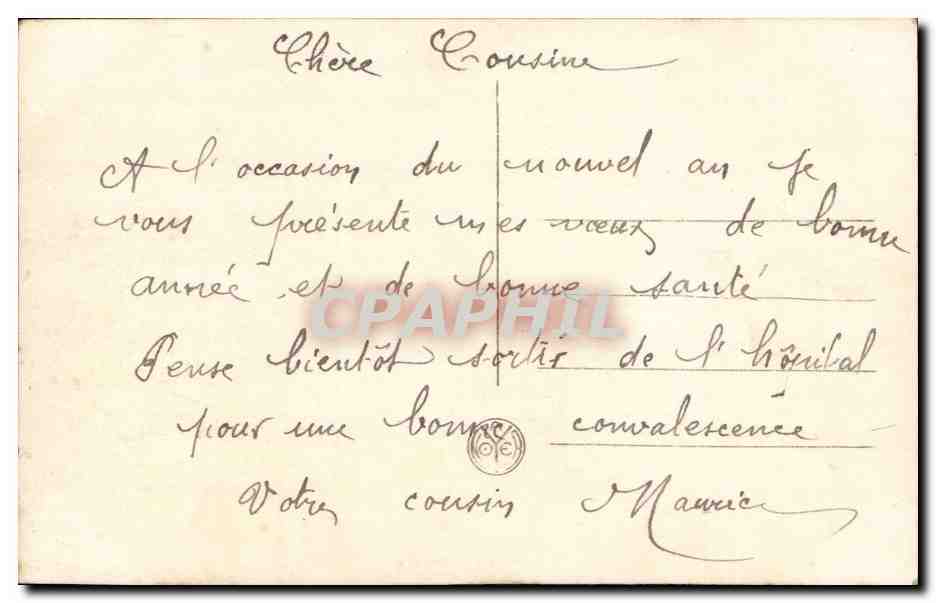 Chère Cousine
A l'occasion du nouvel an je
vous présente mes vœux de bonne
année et de bonne santé
CPAPHIL
Pense bientôt sortir de l'hôpital
pour une bonne convalescence
Votre cousin Maurice